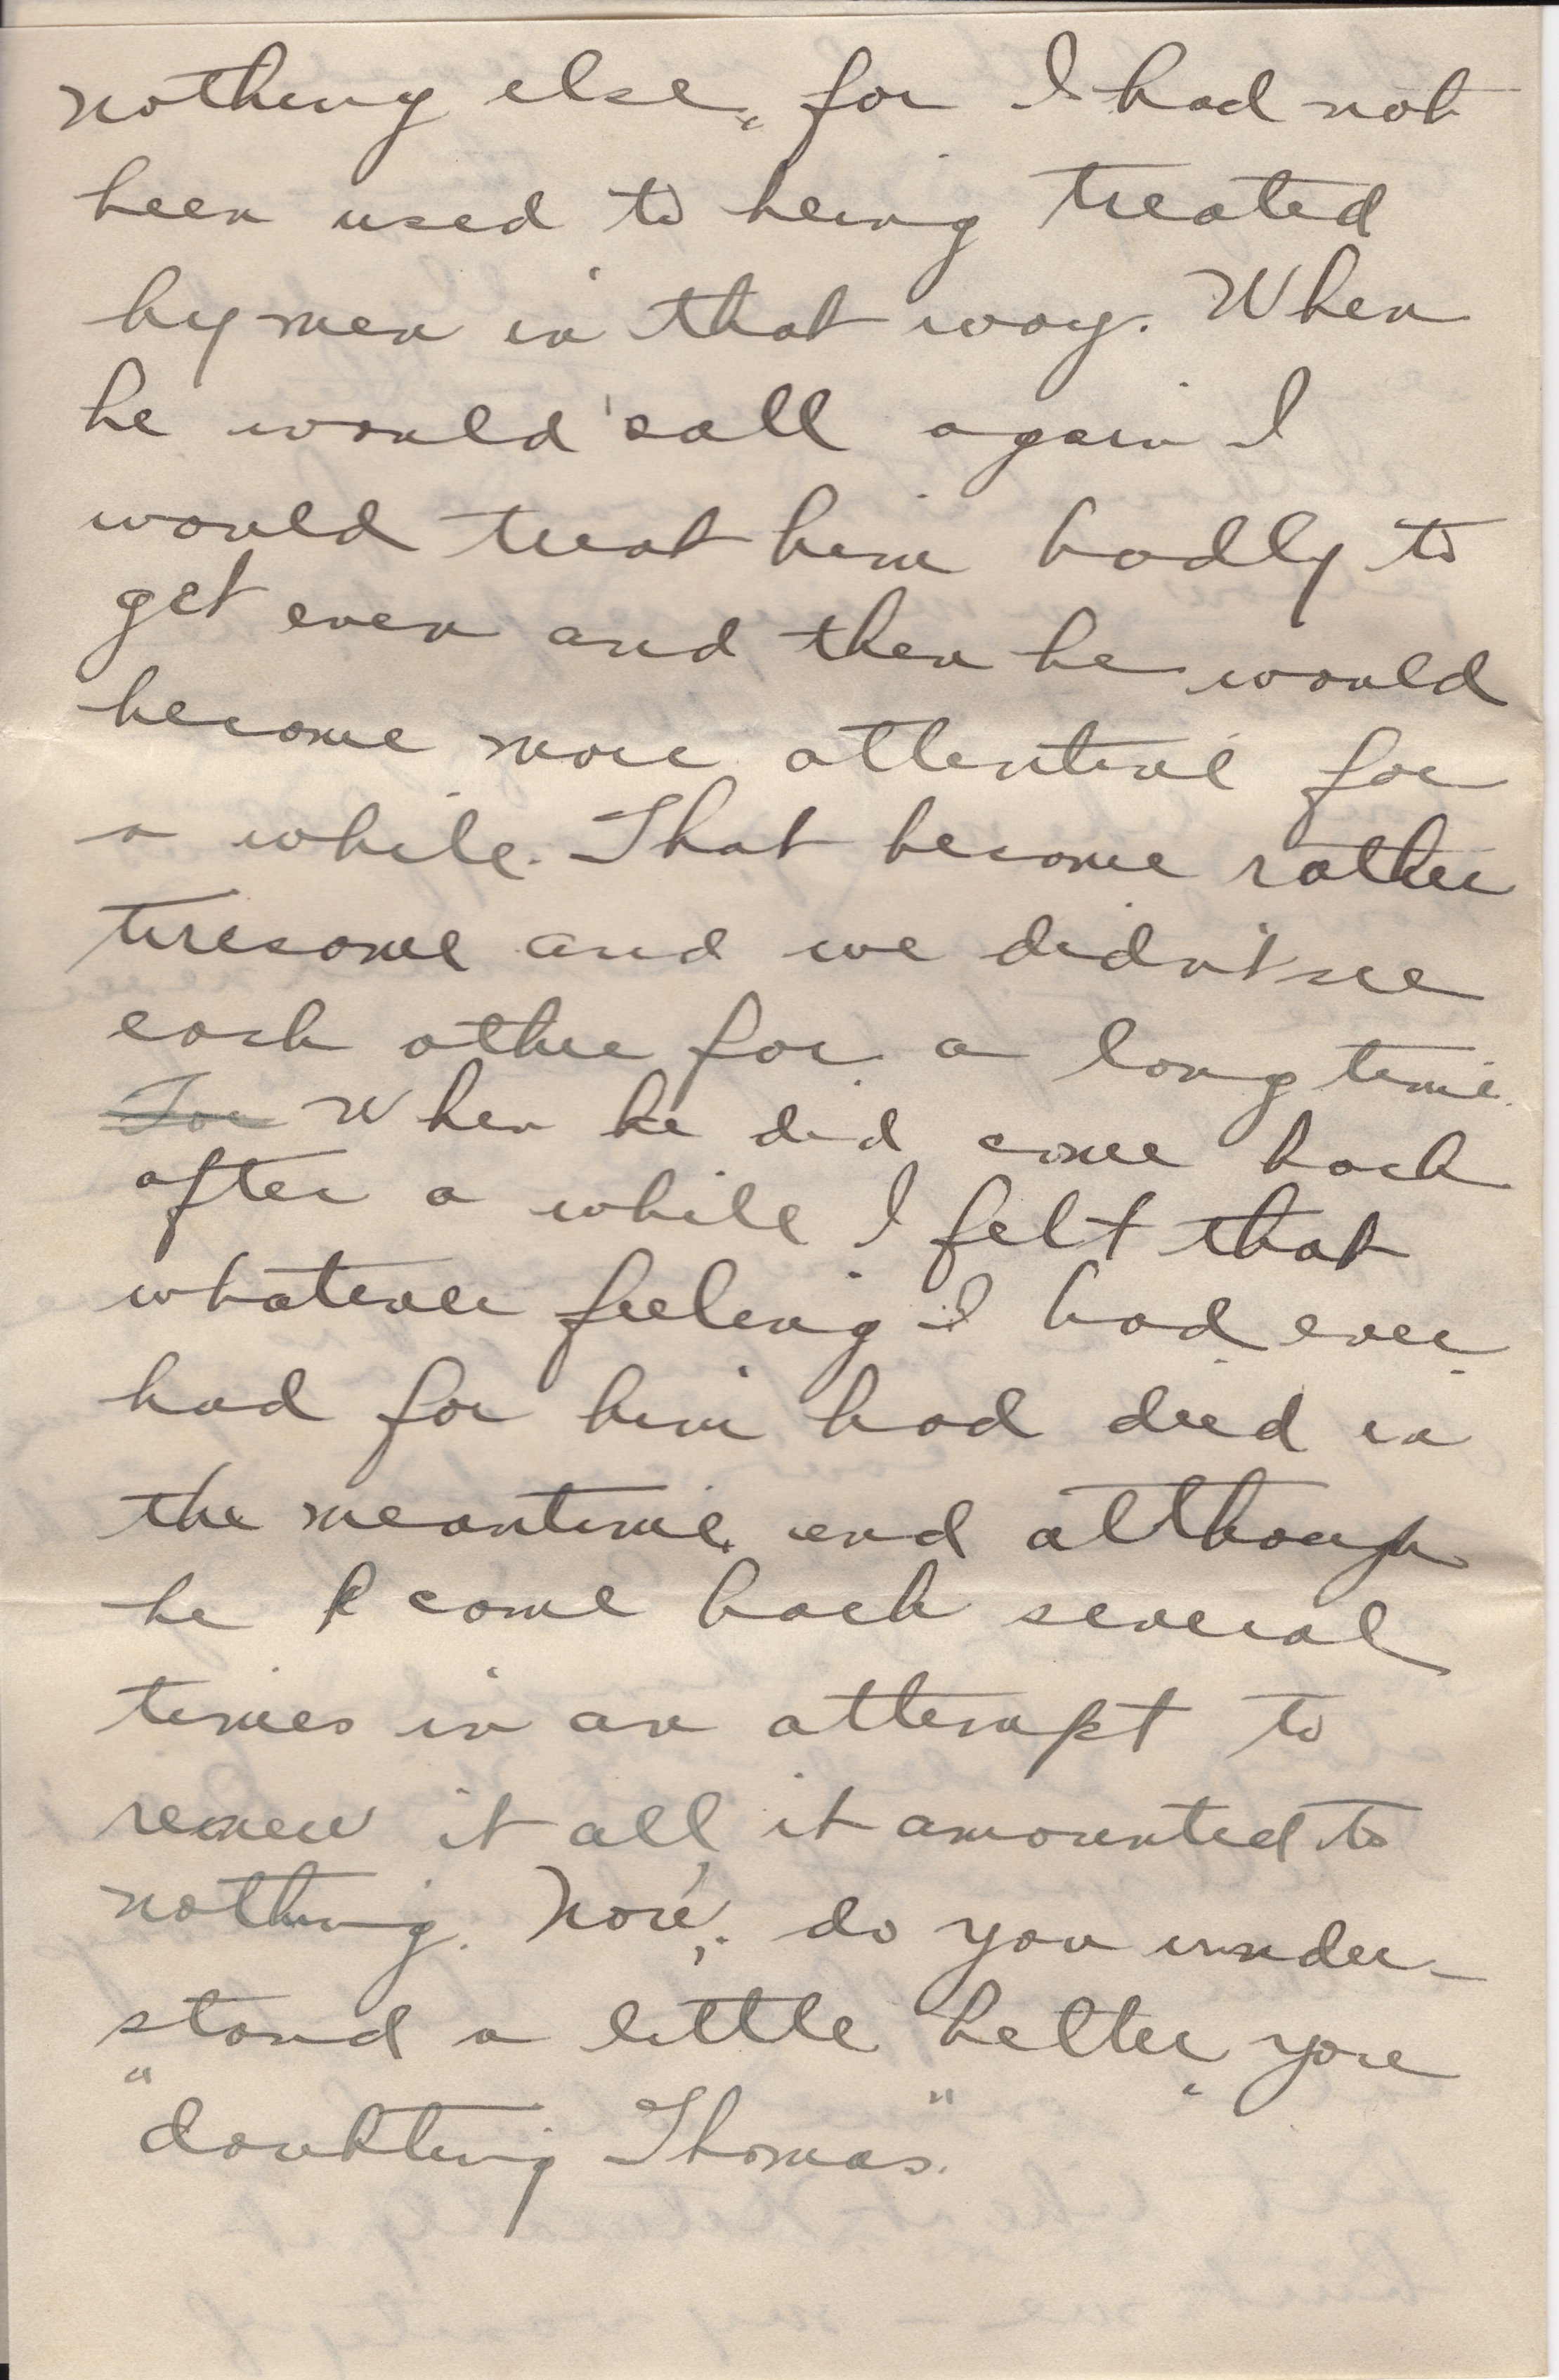 nothing else, for I had not
been used to being treated
by men in that way. When
he would call again I
would treat him badly to
get even and then he would
become more attentive for
a while. That became rather
tiresome and we didn't see
each other for a long time.
For When he did come back
after a while I felt that
whatever feeling I had ever
had for him had died in
the meantime, and although
he come back several
times in an attempt to
renew it all, it amounted to
nothing. Now, do you under-
stand a little better, you
"doubting Thomas."